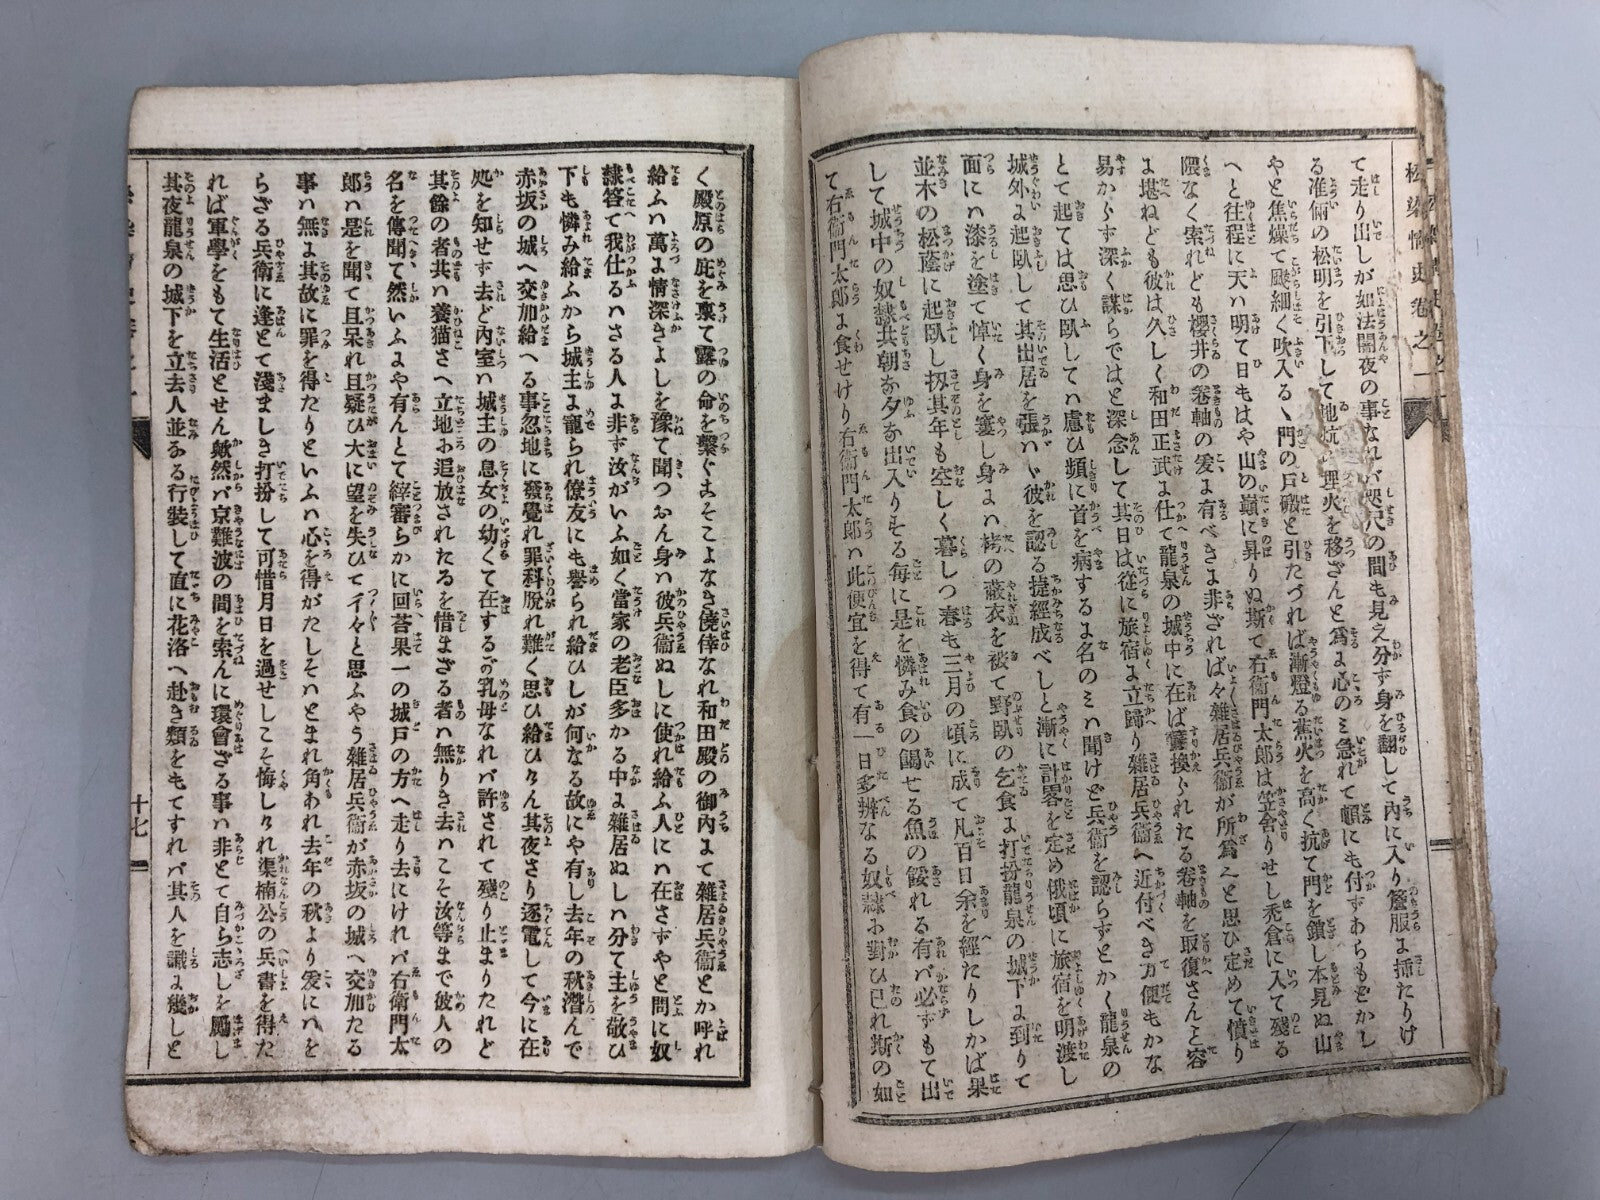 松染情史卷之一
て走り出しが如法闇夜の事なれバ咫尺の間も見え分ず身を翻して內に入り簷服よ揷たりけ
る准備の松明を引下して地坑の埋火を移さんと爲よ心のミ急れて頓にも付ずあらもどかし
やと焦燥て颼細く吹入るゝ門の戶礑と引たづれば漸燈る蕉火を高く抗て門を鎖し本見ぬ山
へと往程に天ハ明て日もはや山の巓に昇りぬ斯て右衞門太郎は笠舍りせし禿倉に入て殘る
隈なく索れども櫻井の卷軸の爰よ有べきよ非ざれば々雜居兵衞が所爲と思ひ定めて憤り
よ堪ねども彼は久しく和田正武よ仕て龍泉の城中に在ば竊換られたる卷軸を取復さんと容
易からず深く謀らではと深念して其日は徒に旅宿よ立歸り雜居兵衞へ近付べき方便もかな
とて起ては思ひ臥してハ慮ひ頻に首を病するよ名のミハ聞けど兵衞を認らずとかく龍泉の
城外よ起臥して其出居を張ハゞ彼を認る捷經成べしと漸に計畧を定め俄頃に旅宿を明渡し
面にハ漆を塗て悼く身を窶し身よハ栲の蔽衣を被て野臥の乞食よ打扮龍泉の城下よ到りて
並木の松蔭に起臥し扨其年も空しく暮しつ春も三月の頃に成て凡百日余を經たりしかば果
して城中の奴隸共朝な夕な出入りそる每に是を憐み食の餲せる魚の餒れる有バ必ずもて出
て右衞門太郎よ食せけり右衞門太郎ハ此便宜を得て有一日多辨なる奴隸に對ひ已れ斯の如
く殿原の庇を稟て露の命を繫ぐはそこよなき僥倖なれ和田殿の御內よて雜居兵衞とか呼れ
給ふハ萬よ情深きよしを豫て聞つおん身ハ彼兵衞ぬしに使れ給ふ人にハ在さずやと問に奴
隸答て我仕るハさる人よ非ず汝がいふ如く當家の老臣多かる中よ雜居ぬしハ分て主を敬ひ
下も憐み給ふから城主よ寵られ僚友にも譽られ給ひしが何なる故にや有し去年の秋潛んで
赤坂の城へ交加給へる事忽地に發覺れ罪科脫れ難く思ひ給ひけん其夜さり逐電して今に在
処を知せず去ど內室ハ城主の息女の幼くて在するが乳母なれバ許されて殘り止まりたれど
其餘の者共ハ養猫さへ立地に追放されたるを惜まざる者ハ無りき去ハこそ汝等まで彼人の
名を傳聞て然いふよや有んとて縡審らかに回荅果一の城戶の方へ走り去にけれバ右衞門太
郞ハ是を聞て且呆れ且疑ひ大に望を失ひてイ々と思ふやう雜居兵衞が赤坂の城へ交加たる
事ハ無よ其故に罪を得たりといふハ心を得がたしそハとまれ角あれ去年の秋より爰にハを
らざる兵衞に逢とて淺ましき打扮して可惜月日を過せしこそ悔しけれ渠楠公の兵書を得た
れば軍學をもて生活とせん歟然バ京難波の間を索んに環會ざる事ハ非とて自ら志しを勵し
其夜龍泉の城下を立去人並なる行裝して直に花洛へ赴き類をもてすれバ其人を識よ幾しと
十七